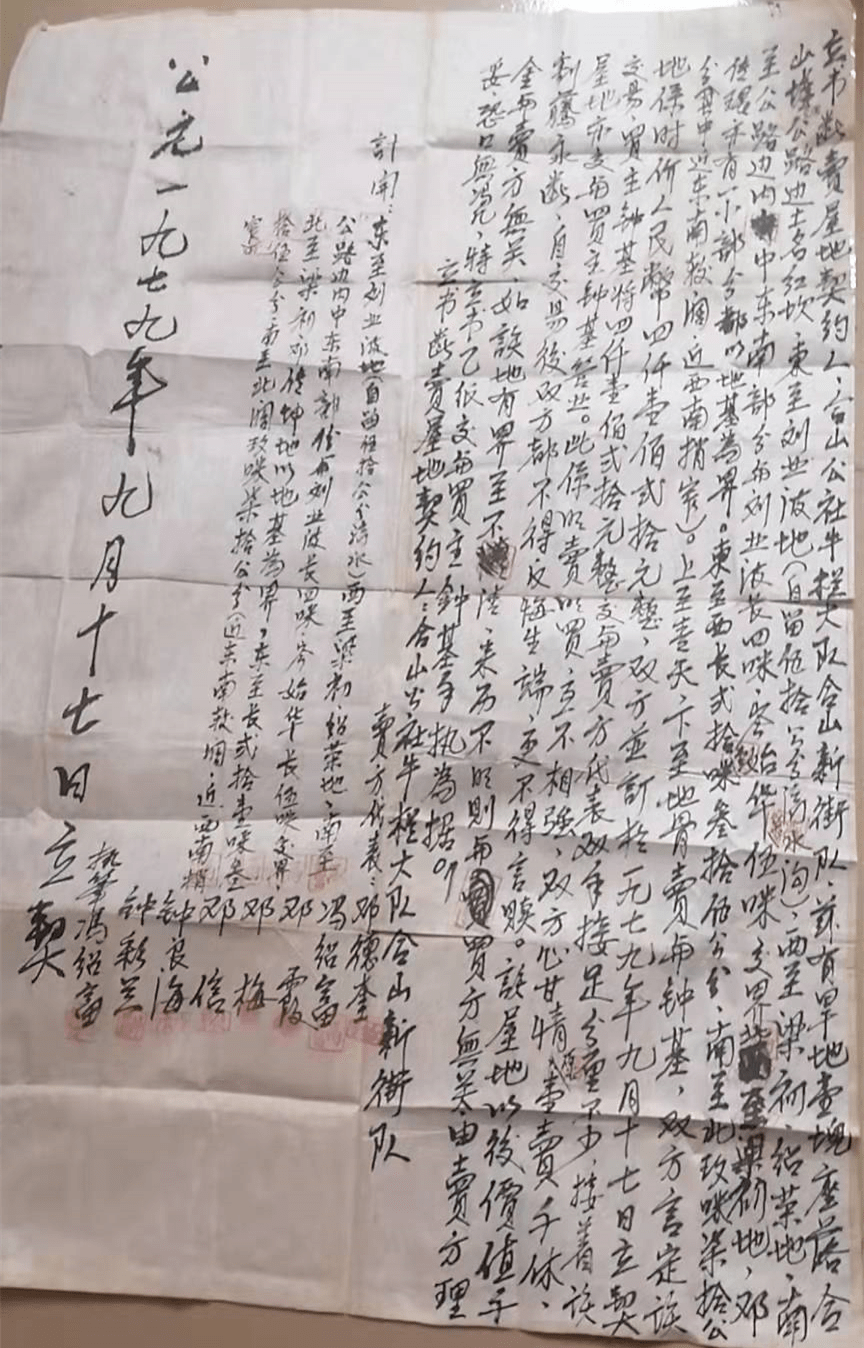 立书断卖屋地契约人:合山公社牛栏大队合山新街队,兹有旱地壹块座落合
山墟公路边土名红坎,东至刘业波地(自留伍拾公分滴水沟),西至梁初、绍荣地,南
至公路边内中东南部分与刘业波长四咪,岑始华伍咪交界,北至梁初地,邓
信瑶亦有一小部分都以地基為界。东至西長弍拾咪叁拾伍公分,南至北玖咪柒拾公
分(其中近东南較阔,近西南捎窄)。上至青天,下至地骨賣与钟基,双方言定该
地係时价人民幣四仟壹佰弍拾元整,双方並訂於一九七九年九月十七日立契
交易,買主钟基将四仟壹佰弍拾元整交与賣方代表双手接足分厘不少,接着该
屋地亦交与買主钟基营业。此係明賣明買,立不相強,双方心甘情愿壹賣千休、
割藤永断,自交易後双方都不得反悔生端,更不得言赎。该屋地以後價值千
金与賣方無关,如該地有界至不清、来历不明則与買方無关由賣方理
妥,恐口無凭,特立书乙纸交与買主鈡基手执為据。
立书断賣屋地契約人:合山公社牛栏大队合山新街队
賣方代表:邓德奎
冯绍富
邓霞
邓梅
邓信
钟良海
钟彩兰
执筆冯绍富
計開:东至刘业波地(自留伍拾公分滴水)西至梁初、绍荣地、南至
公路边内中东南部份与刘业波長四咪,岑始华長伍咪交界,
北至梁初、邓信钟地以地基為界,东至長弍拾壹咪叁
拾伍公分南至北阔玖咪柒拾公分(近东南較阔,近西南捎
窄)
公元一九七九年九月十七日立契